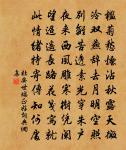 檻菊愁煙沾秋露天微
冷双燕辭去月明空照
別離苦透素光穿朱户
夜来西風雕寒樹凭闌
望迢遥長路花箋寫就
此情緒特寄傳知何處
杜安世端正好